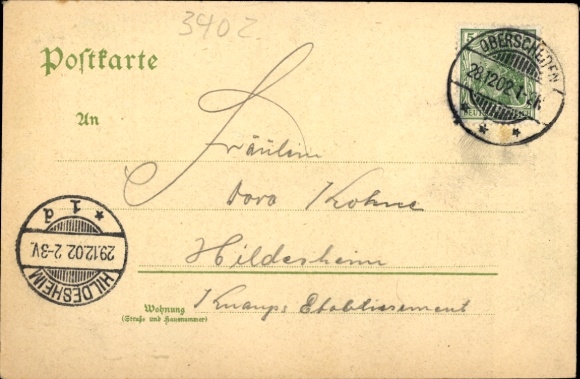 3402
Postkarte
5
DEUTSCHES REICH
OBERSCHEDEN
28.12.02
An
Fräulein
Dora Kohne
Hildesheim
Wohnung
(Straße und Hausnummer)
Knaups Etablissement
HILDESHEIM
29.12.02 2-3V.
* 1 d